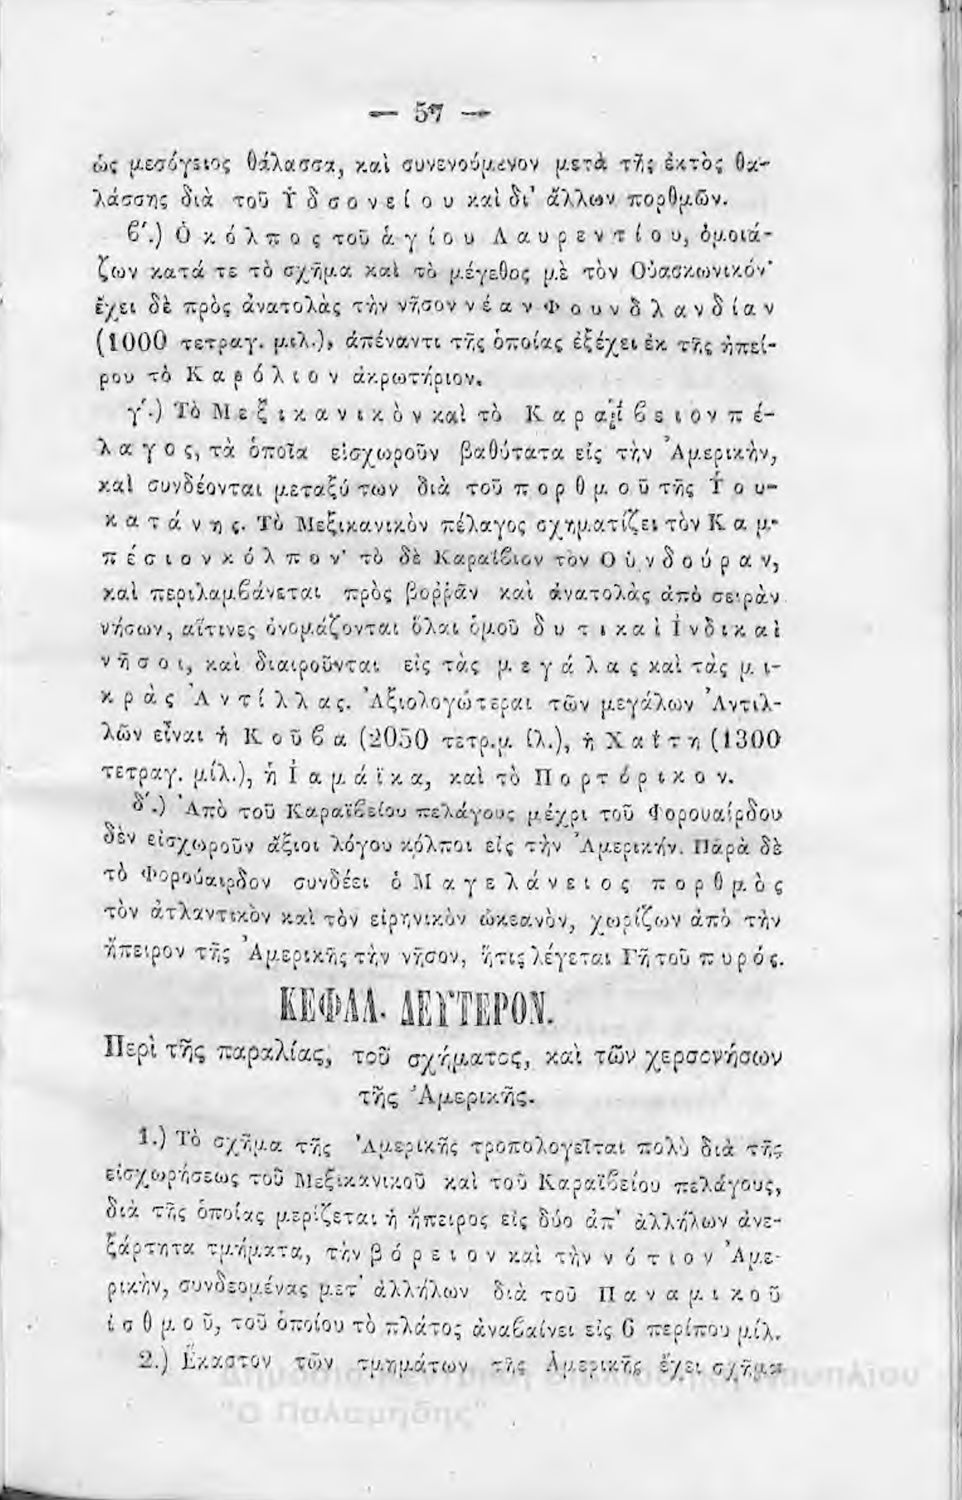 — 57 —
ὡς μεσόγειος θάλασσα, καὶ συνενούμενον μετὰ τῆς ἐκτὸς θα-
λάσσης διὰ τοῦ Ὑδσονείου καὶ δι' ἄλλων πορθμῶν.
β'.) Ὁ κόλπος τοῦ ἁγίου Λαυρεντίου, ὁμοιά-
ζων κατά τε τὸ σχῆμα καὶ τὸ μέγεθος μὲ τὸν Οὐασκωνικόν·
ἔχει δὲ πρὸς ἀνατολὰς τὴν νῆσον νέαν Φουνδλανδίαν
(1000 τετραγ. μιλ.), ἀπέναντι τῆς ὁποίας ἐξέχει ἐκ τῆς ἠπεί-
ρου τὸ Καρόλιον ἀκρωτήριον.
γ'.) Τὸ Μεξικανικὸν καὶ τὸ Καραΐβειον πέ-
λαγος, τὰ ὁποῖα εἰσχωροῦν βαθύτατα εἰς τὴν Ἀμερικὴν,
καὶ συνδέονται μεταξύ των διὰ τοῦ πορθμοῦ τῆς Ὑου-
κατάνης. Τὸ Μεξικανικὸν πέλαγος σχηματίζει τὸν Καμ-
πέσιον κόλπον· τὸ δὲ Καραΐβιον τὸν Οὑνδούραν,
καὶ περιλαμβάνεται πρὸς βοῤῥᾶν καὶ ἀνατολὰς ἀπὸ σειρὰν
νήσων, αἵτινες ὀνομάζονται ὅλαι ὁμοῦ δυτικαὶ Ἰνδικαὶ
νῆσοι, καὶ διαιροῦνται εἰς τὰς μεγάλας καὶ τὰς μι-
κρὰς Ἀντίλλας. Ἀξιολογώτεραι τῶν μεγάλων Ἀντιλ-
λῶν εἶναι ἡ Κούβα (2050 τετρ.μ ίλ.), ἡ Χαΐτη (1300
τετραγ. μίλ.), ἡ Ἰαμάϊκα, καὶ τὸ Πορτόρικον.
δ'.) Ἀπὸ τοῦ Καραϊβείου πελάγους μέχρι τοῦ Φορουαίρδου
δὲν εἰσχωροῦν ἄξιοι λόγου κόλποι εἰς τὴν Ἀμερικήν. Παρὰ δὲ
τὸ Φορούαιρδον συνδέει ὁ Μαγελάνειος πορθμὸς
τὸν ἀτλαντικὸν καὶ τὸν εἰρηνικὸν ὠκεανὸν, χωρίζων ἀπὸ τὴν
ἤπειρον τῆς Ἀμερικῆς τὴν νῆσον, ἥτις λέγεται Γῆ τοῦ πυρός.
ΚΕΦΑΛ. ΔΕΥΤΕΡΟΝ.
Περὶ τῆς παραλίας, τοῦ σχήματος, καὶ τῶν χερσονήσων
τῆς Ἀμερικῆς.
1.) Τὸ σχῆμα τῆς Ἀμερικῆς τροπολογεῖται πολὺ διὰ τῆς
εἰσχωρήσεως τοῦ Μεξικανικοῦ καὶ τοῦ Καραϊβείου πελάγους,
διὰ τῆς ὁποίας μερίζεται ἡ ἤπειρος εἰς δύο ἀπ' ἀλλήλων ἀνε-
ξάρτητα τμήματα, τὴν βόρειον καὶ τὴν νότιον Ἀμε-
ρικὴν, συνδεομένας μετ' ἀλλήλων διὰ τοῦ Παναμικοῦ
ἰσθμοῦ, τοῦ ὁποίου τὸ πλάτος ἀναβαίνει εἰς 6 περίπου μίλ.
2.) Ἕκαστον τῶν τμημάτων τῆς Ἀμερικῆς ἔχει σχῆμα
Δημόσια Κεντρική Βιβλιοθήκη Ναυπλίου
"Ο Παλαμήδης"